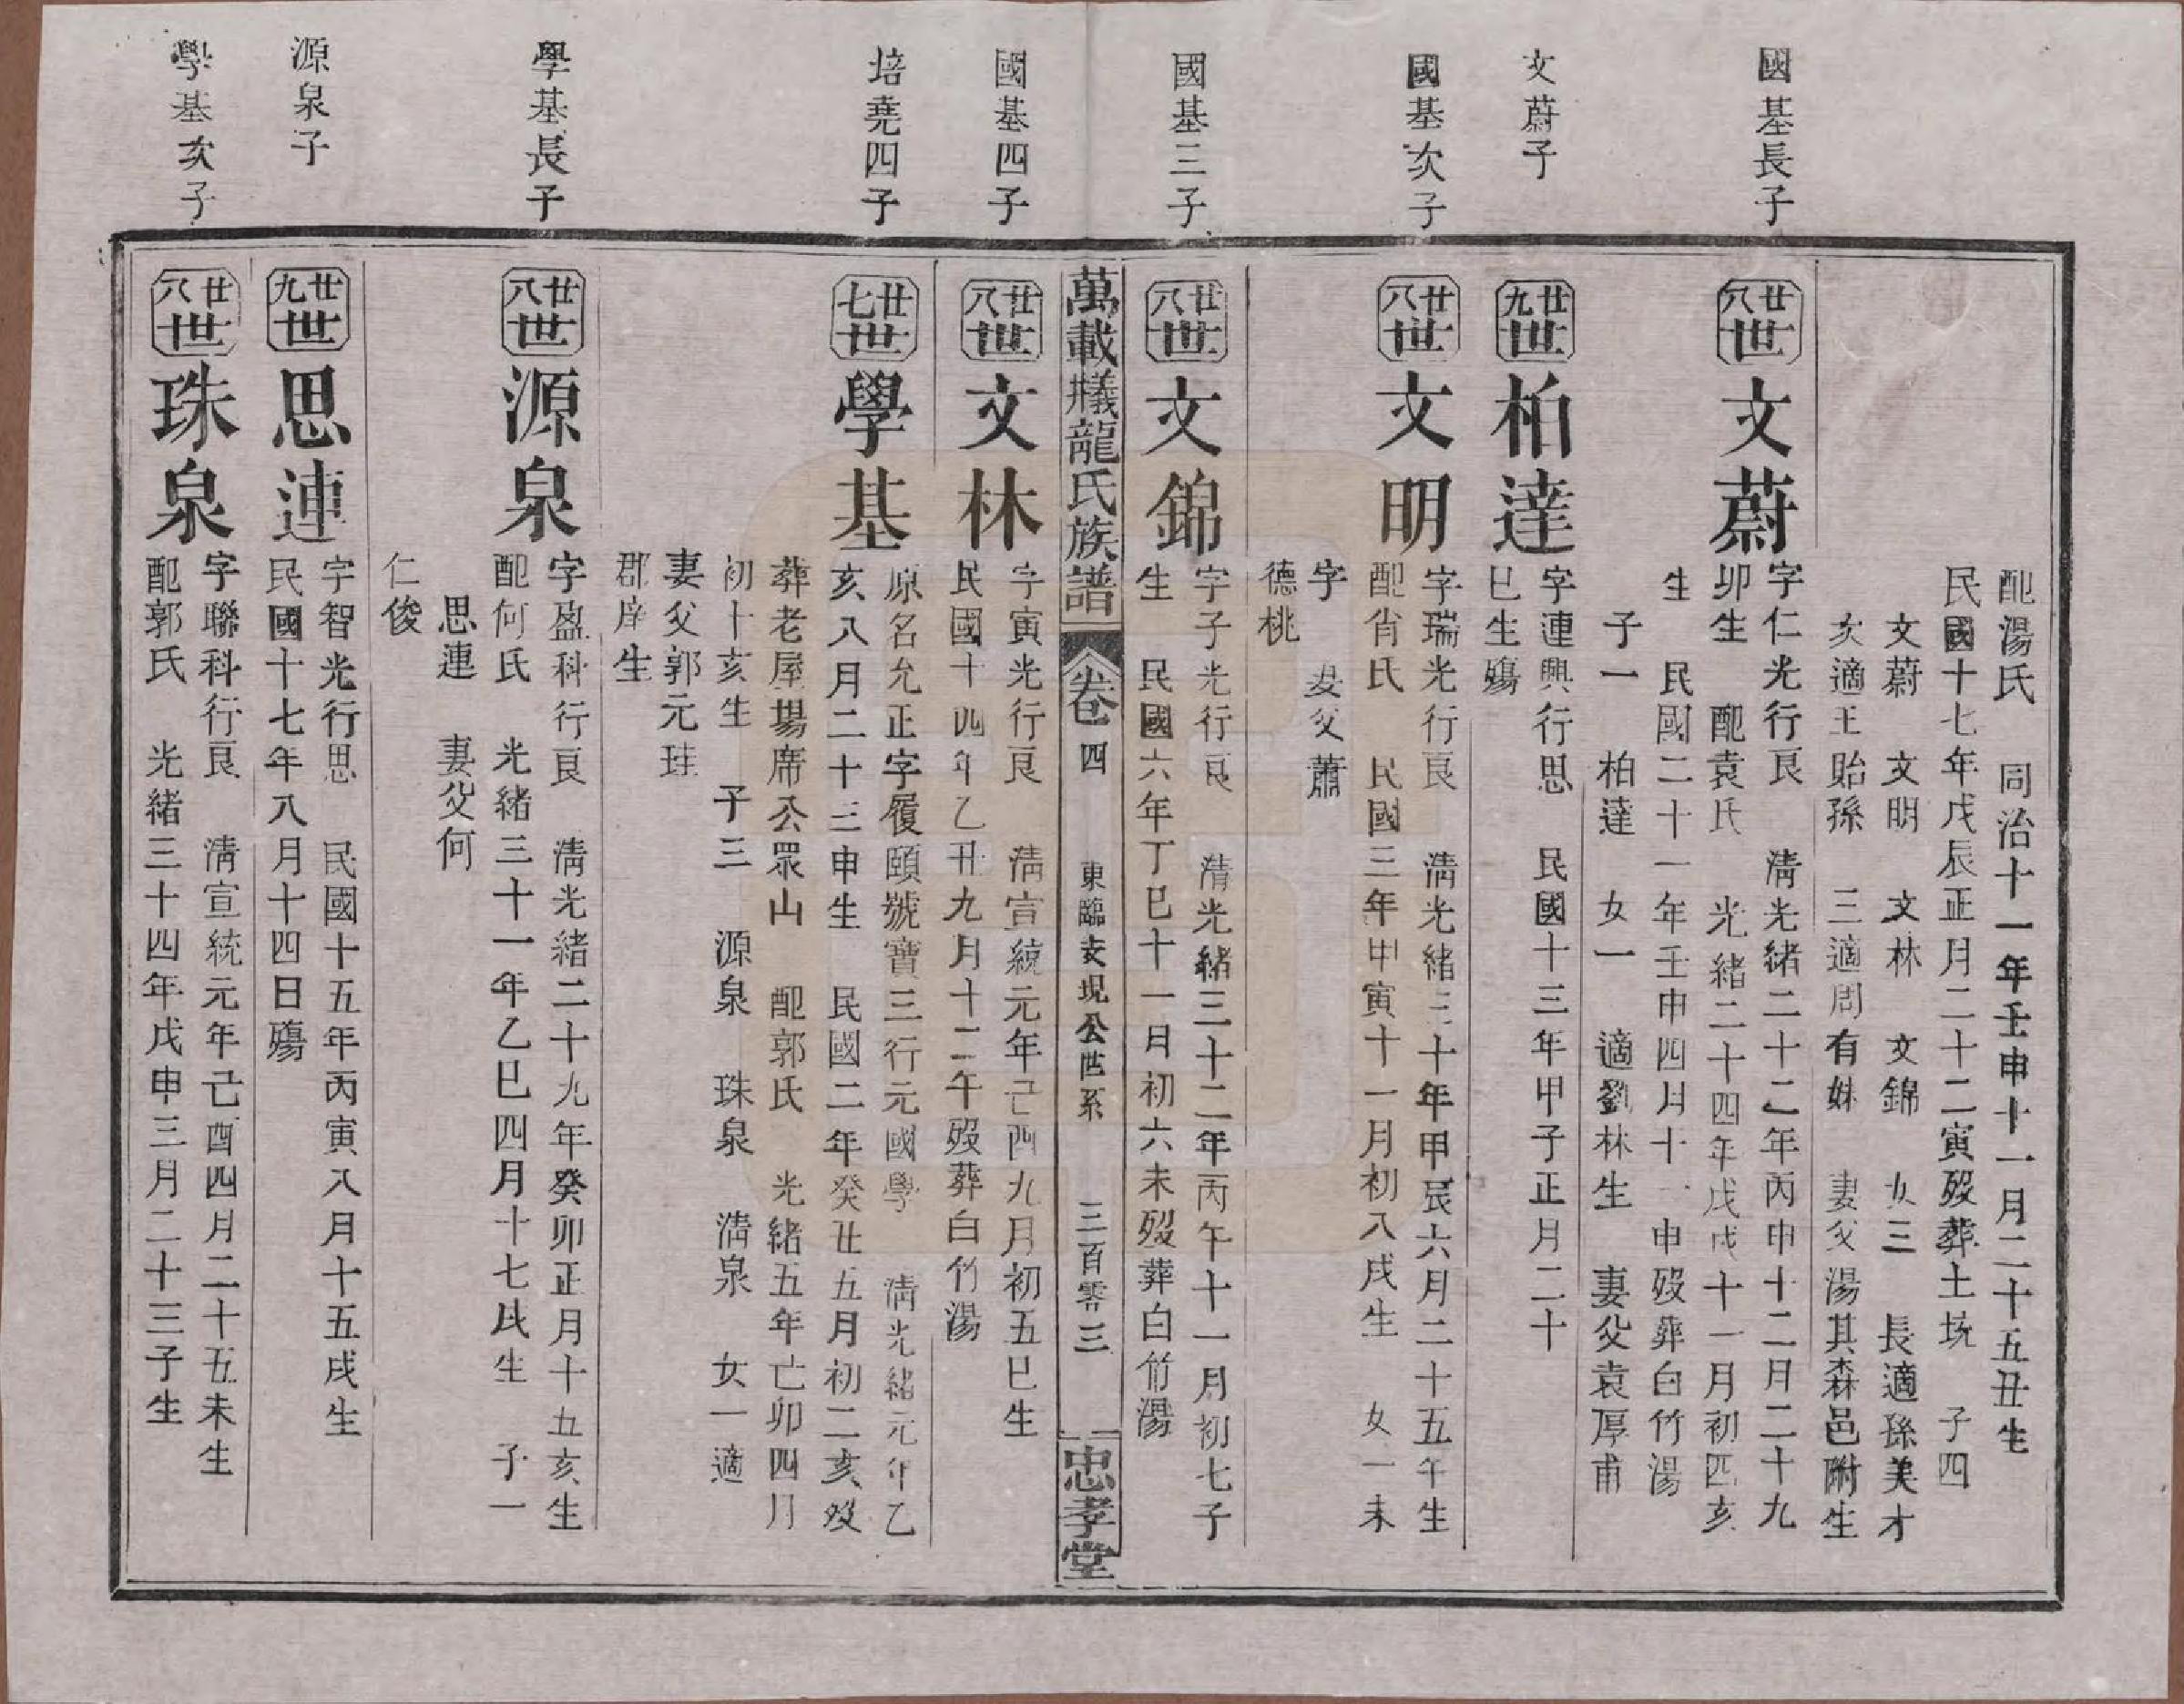 配湯氏　同治十一年壬申十一月二十五丑生
民國十七年戊辰正月二十二寅歿葬土坑　子四
文蔚　文明　文林　文錦　女三　長適孫美才
次適王貽孫　三適周有姝　妻父湯其森邑附生
國基長子
廿八世　文蔚
字仁光行良　淸光緒二十二年丙申十二月二十九
卯生　配袁氏　光緒二十四年戊戌十一月初四亥
生　民國二十一年壬申四月十一申歿葬白竹湯
子一　柏達　女一　適劉林生　妻父袁厚甫
文蔚子
廿九世　柏達
字連興行思　民國十三年甲子正月二十
巳生殤
國基次子
廿八世　文明
字瑞光行良　淸光緒三十年甲辰六月二十五午生
配肖氏　民國三年甲寅十一月初八戌生　女一未
字　妻父蕭
德桃
國基三子
廿八世　文錦
字子光行良　淸光緒三十二年丙午十一月初七子
生　民國六年丁巳十一月初六未歿葬白竹湯
萬載㰕龍氏族譜　卷四　東臨支現公世系　三百零三　忠孝堂
國基四子
廿八世　文林
字寅光行良　淸宣統元年己酉九月初五巳生
民國十四年乙丑九月十二午歿葬白竹湯
培堯四子
廿七世　學基
原名允正字履頤號寶三行元國學　淸光緒元年乙
亥八月二十三申生　民國二年癸丑五月初二亥歿
葬老屋場席公眾山　配郭氏　光緒五年亡卯四月
初十亥生　子三　源泉　珠泉　淸泉　女一適
妻父郭元珪
郡庠生
學基長子
廿八世　源泉
字盈科行良　淸光緒二十九年癸卯正月十五亥生
配何氏　光緒三十一年乙巳四月十七辰生　子一
思連　妻父何
仁俊
源泉子
廿九世　思連
字智光行思　民國十五年丙寅八月十五戌生
民國十七年八月十四日殤
學基次子
廿八世　珠泉
字聯科行良　淸宣統元年己酉四月二十五未生
配郭氏　光緒三十四年戊申三月二十三子生